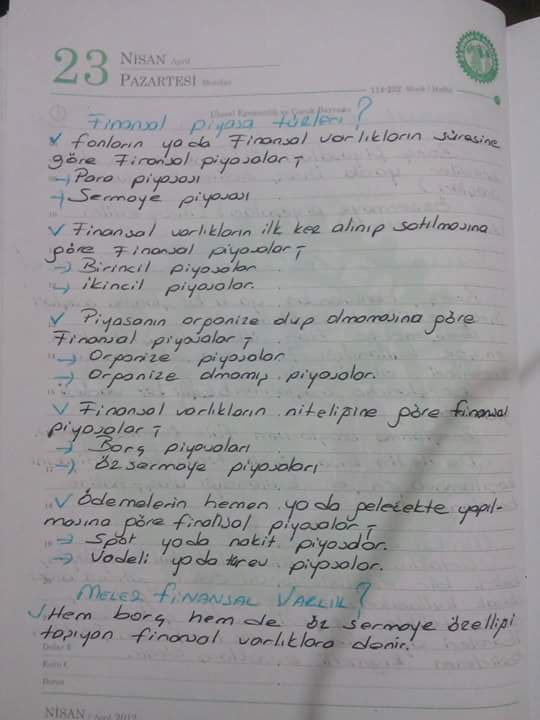 23
NİSAN April
PAZARTESİ Monday
Ulusal Egemenlik ve Çocuk Bayramı
Finansal piyasa türleri?
✓ fonların yada Finansal varlıkların süresine
göre Finansal piyasalar;
→ Para piyasası
→ Sermaye piyasası
✓ Finansal varlıkların ilk kez alınıp satılmasına
göre Finansal piyasalar;
→ Birincil piyasalar
→ ikincil piyasalar.
✓ Piyasanın organize olup olmamasına göre
Finansal piyasalar;
→ Organize piyasalar
→ Organize olmamış piyasalar.
✓ Finansal varlıkların niteliğine göre finansal
piyasalar;
→ Borç piyasaları
→ öz sermaye piyasaları
✓ Ödemelerin hemen yada gelecekte yapıl-
masına göre finansal piyasalar;
→ Spot yada nakit piyasalar.
→ Vadeli yada türev piyasalar.
MELEZ FİNANSAL VARLIK?
✓ Hem borç hem de öz sermaye özelliği
taşıyan finansal varlıklara denir.
NİSAN / April 2012